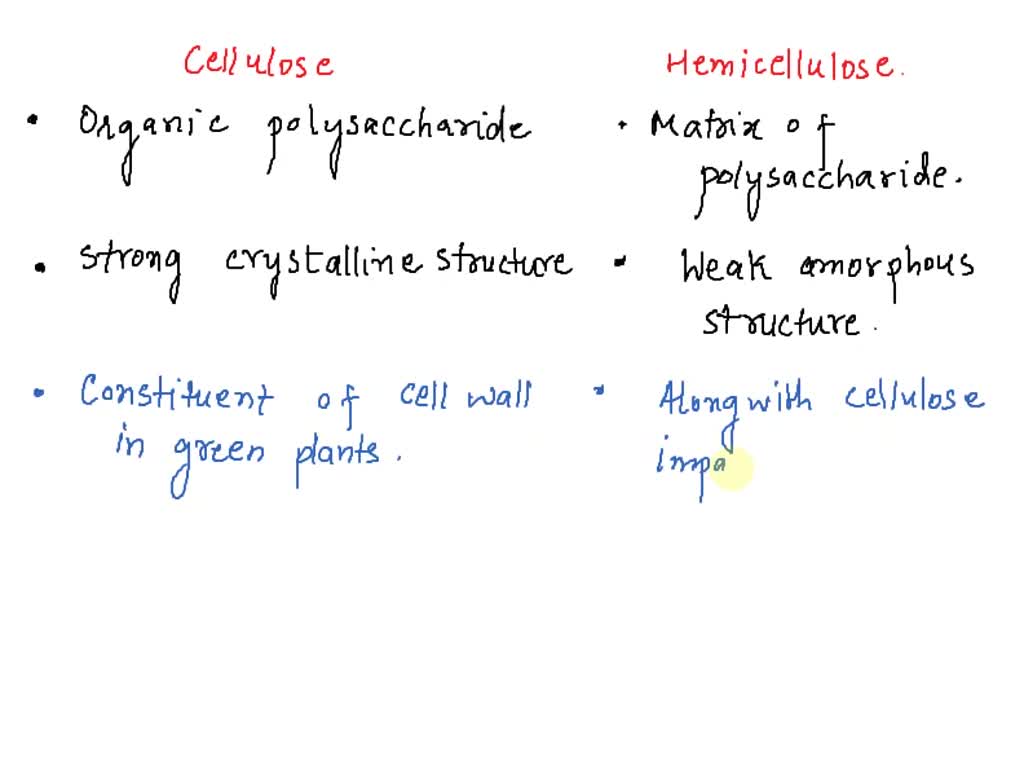 Cellulose
Hemicellulose.
• Organic polysaccharide
• Matrix of
polysaccharide.
• Strong crystalline structure
• Weak amorphous
structure.
• Constituent of cell wall
in green plants.
• Along with cellulose
impa